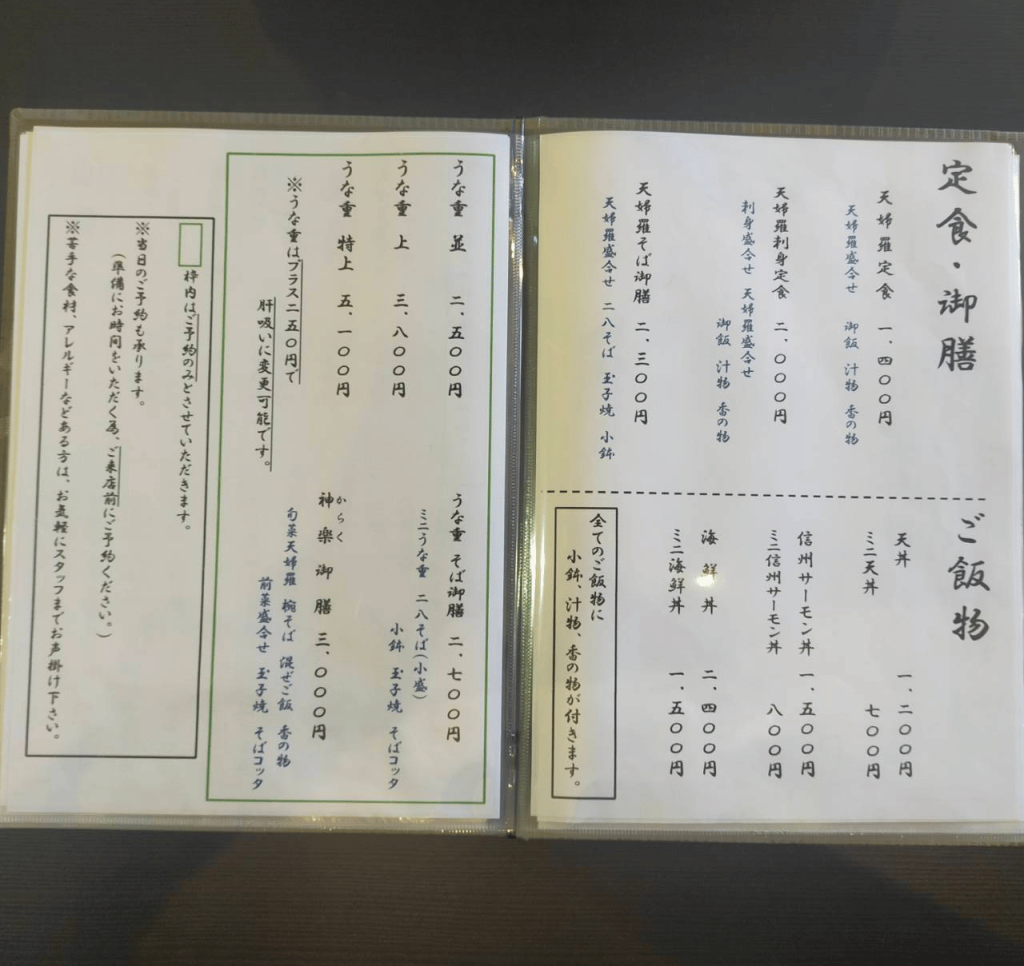 定食・御膳
天婦羅定食 一、四〇〇円
天婦羅盛合せ 御飯 汁物 香の物
天婦羅刺身定食 二、〇〇〇円
刺身盛合せ 天婦羅盛合せ
御飯 汁物 香の物
天婦羅そば御膳 二、三〇〇円
天婦羅盛合せ 二八そば 玉子焼 小鉢
ご飯物
天丼 一、二〇〇円
ミニ天丼 七〇〇円
信州サーモン丼 一、五〇〇円
ミニ信州サーモン丼 八〇〇円
海鮮丼 二、四〇〇円
ミニ海鮮丼 一、五〇〇円
全てのご飯物に
小鉢、汁物、香の物が付きます。
うな重 並 二、五〇〇円
うな重 上 三、八〇〇円
うな重 特上 五、一〇〇円
※うな重はプラス二五〇円で
肝吸いに変更可能です。
うな重 そば御膳 二、七〇〇円
ミニうな重 二八そば(小盛)
小鉢 玉子焼 そばコッタ
からく
神楽御膳 三、〇〇〇円
旬菜天婦羅 椀そば 混ぜご飯 香の物
前菜盛合せ 玉子焼 そばコッタ
枠内はご予約のみとさせていただきます。
※当日のご予約も承ります。
(準備にお時間をいただく為、ご来店前にご予約ください。)
※苦手な食材、アレルギーなどある方は、お気軽にスタッフまでお声掛け下さい。